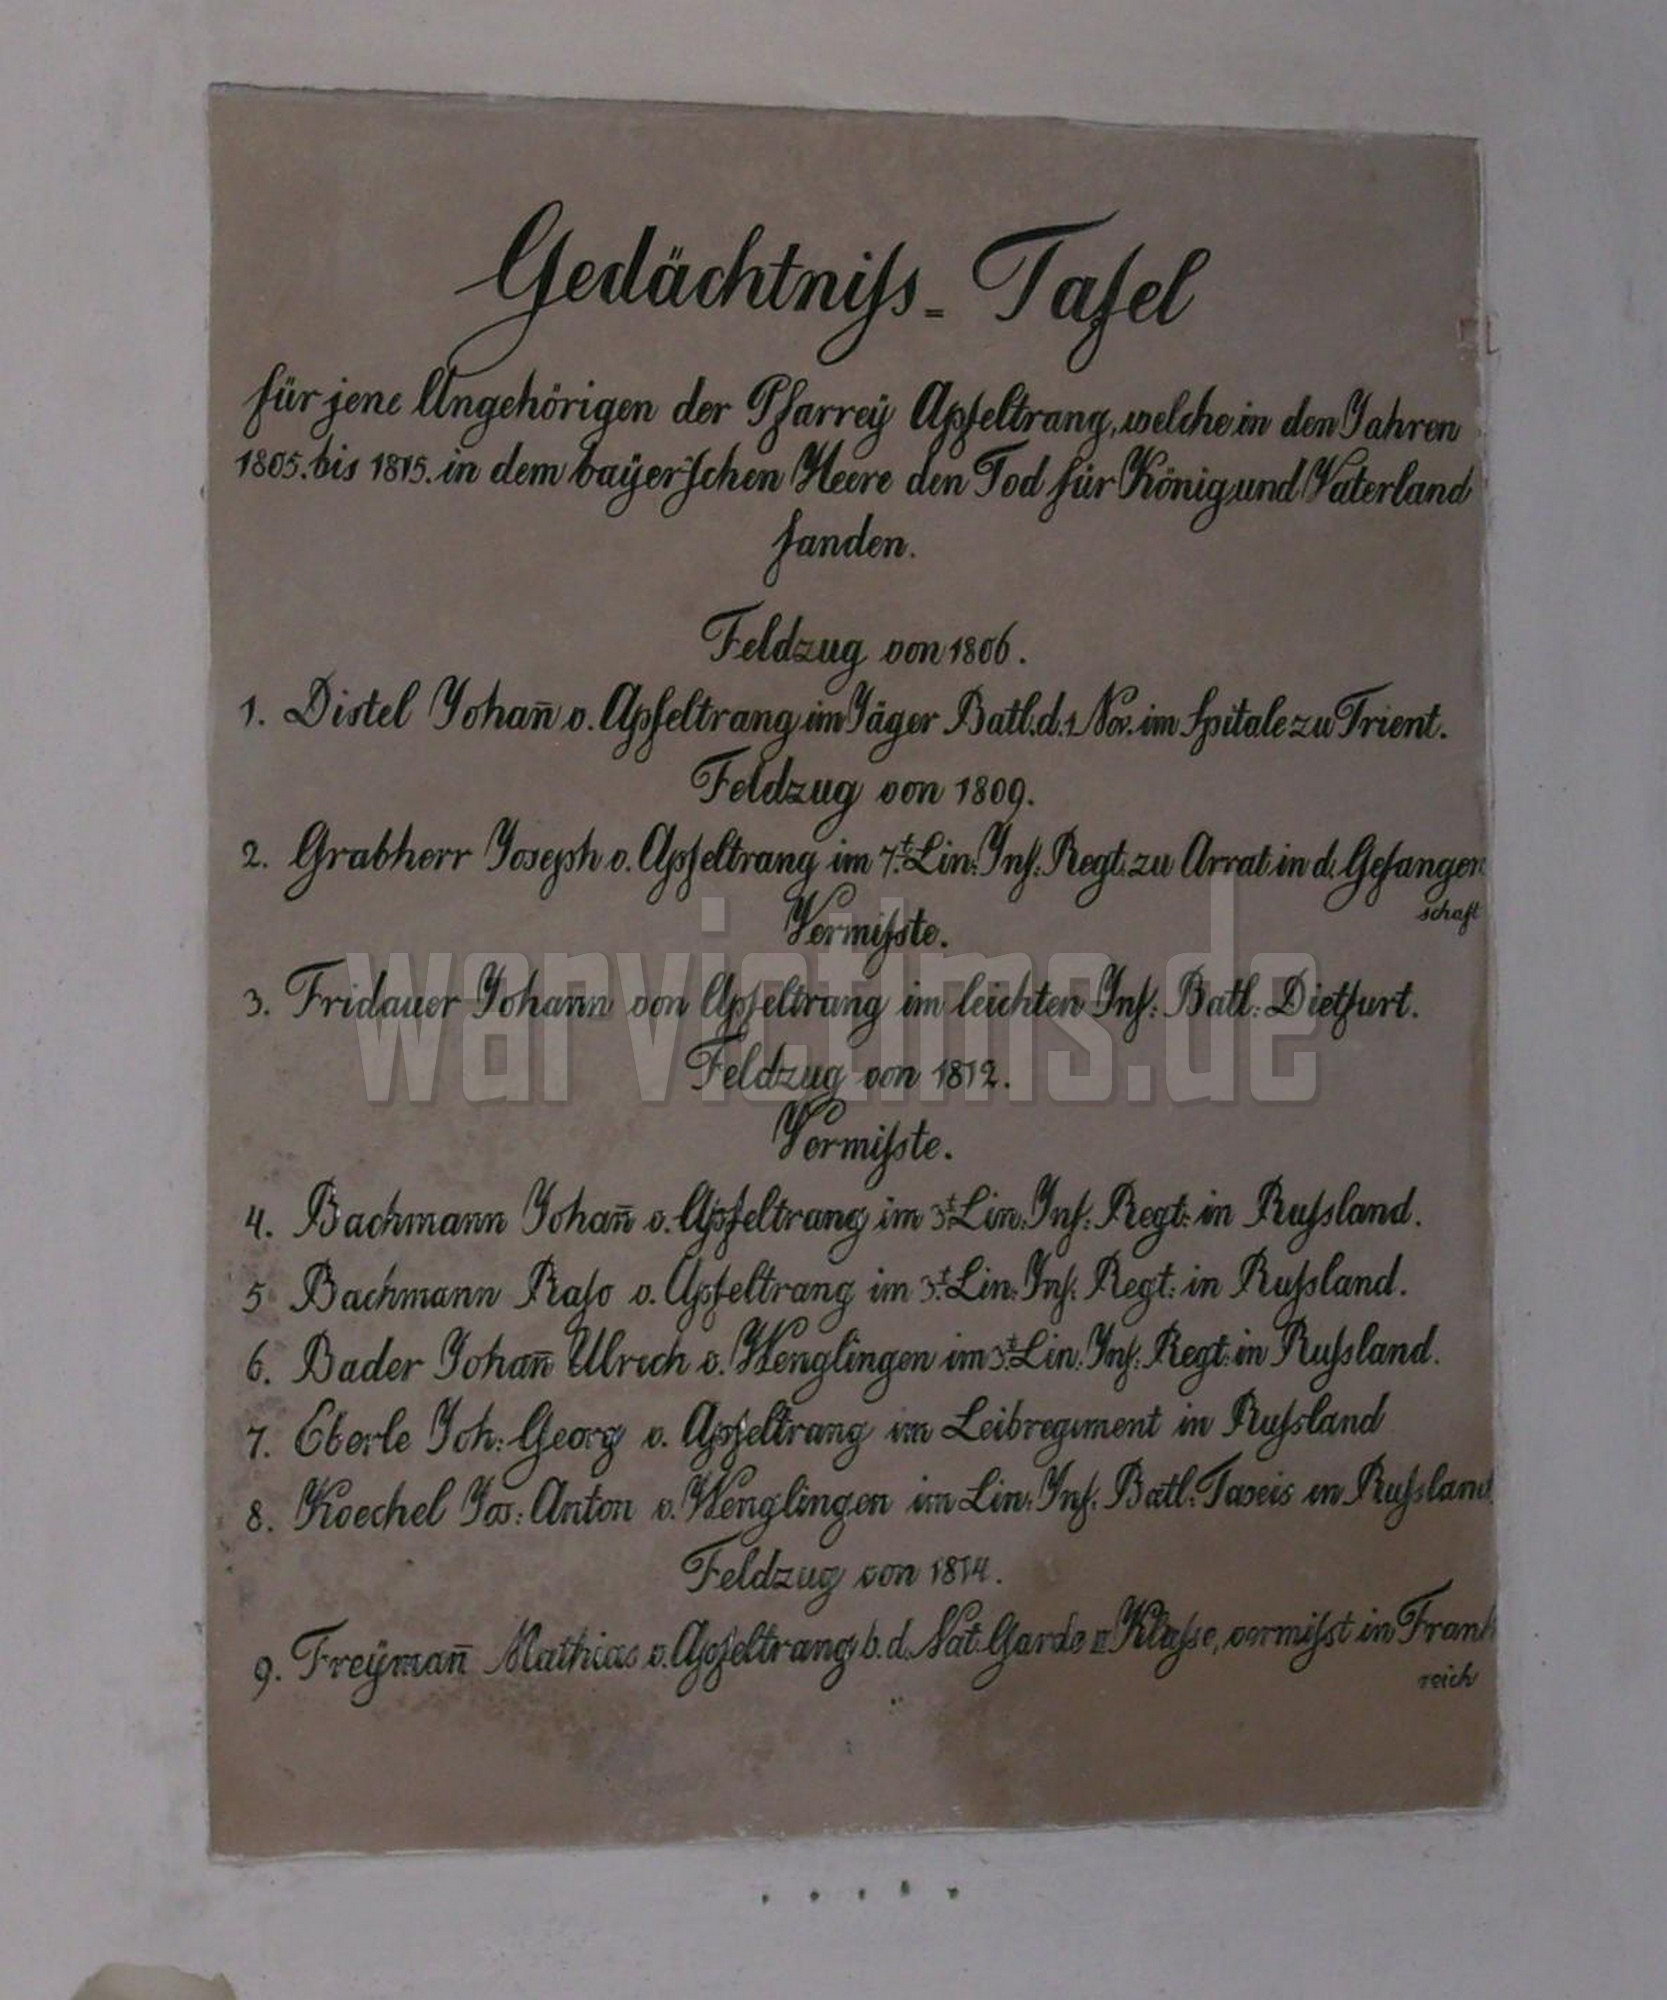 Gedächtniſs = Tafel
für jene Angehörigen der Pfarreÿ Apfeltrang, welche in den Jahren
1805. bis 1815. in dem baÿer'ſchen Heere den Tod für König und Vaterland
fanden.
Feldzug von 1806.
1. Distel Johañ v. Apfeltrang im Jäger Batl. d. 1. Nov. im Spitale zu Trient.
Feldzug von 1809.
2. Grabherr Joseph v. Apfeltrang im 7.t Lin: Inf: Regt. zu Arrat in d. Gefangen
schaft
Vermiſste.
3. Fridauer Johann von Apfeltrang im leichten Inf: Batl: Dietfurt.
warvictims.de
Feldzug von 1812.
Vermiſste.
4. Bachmann Johañ v. Apfeltrang im 3.t Lin: Inf: Regt: in Ruſsland.
5 Bachmann Raso v. Apfeltrang im 3.t Lin: Inf: Regt: in Ruſsland.
6. Bader Johañ Ulrich v. Wenglingen im 3.t Lin. Inf: Regt: in Ruſsland.
7. Eberle Joh: Georg v. Apfeltrang im Leibregiment in Ruſsland
8. Koechel Jos: Anton v. Wenglingen im Lin: Inf. Batl: Taxeis in Ruſsland.
Feldzug von 1814.
9. Freÿmañ Mathias v. Apfeltrang b. d. Nat. Garde II Klaſse, vermiſst in Frank
reich